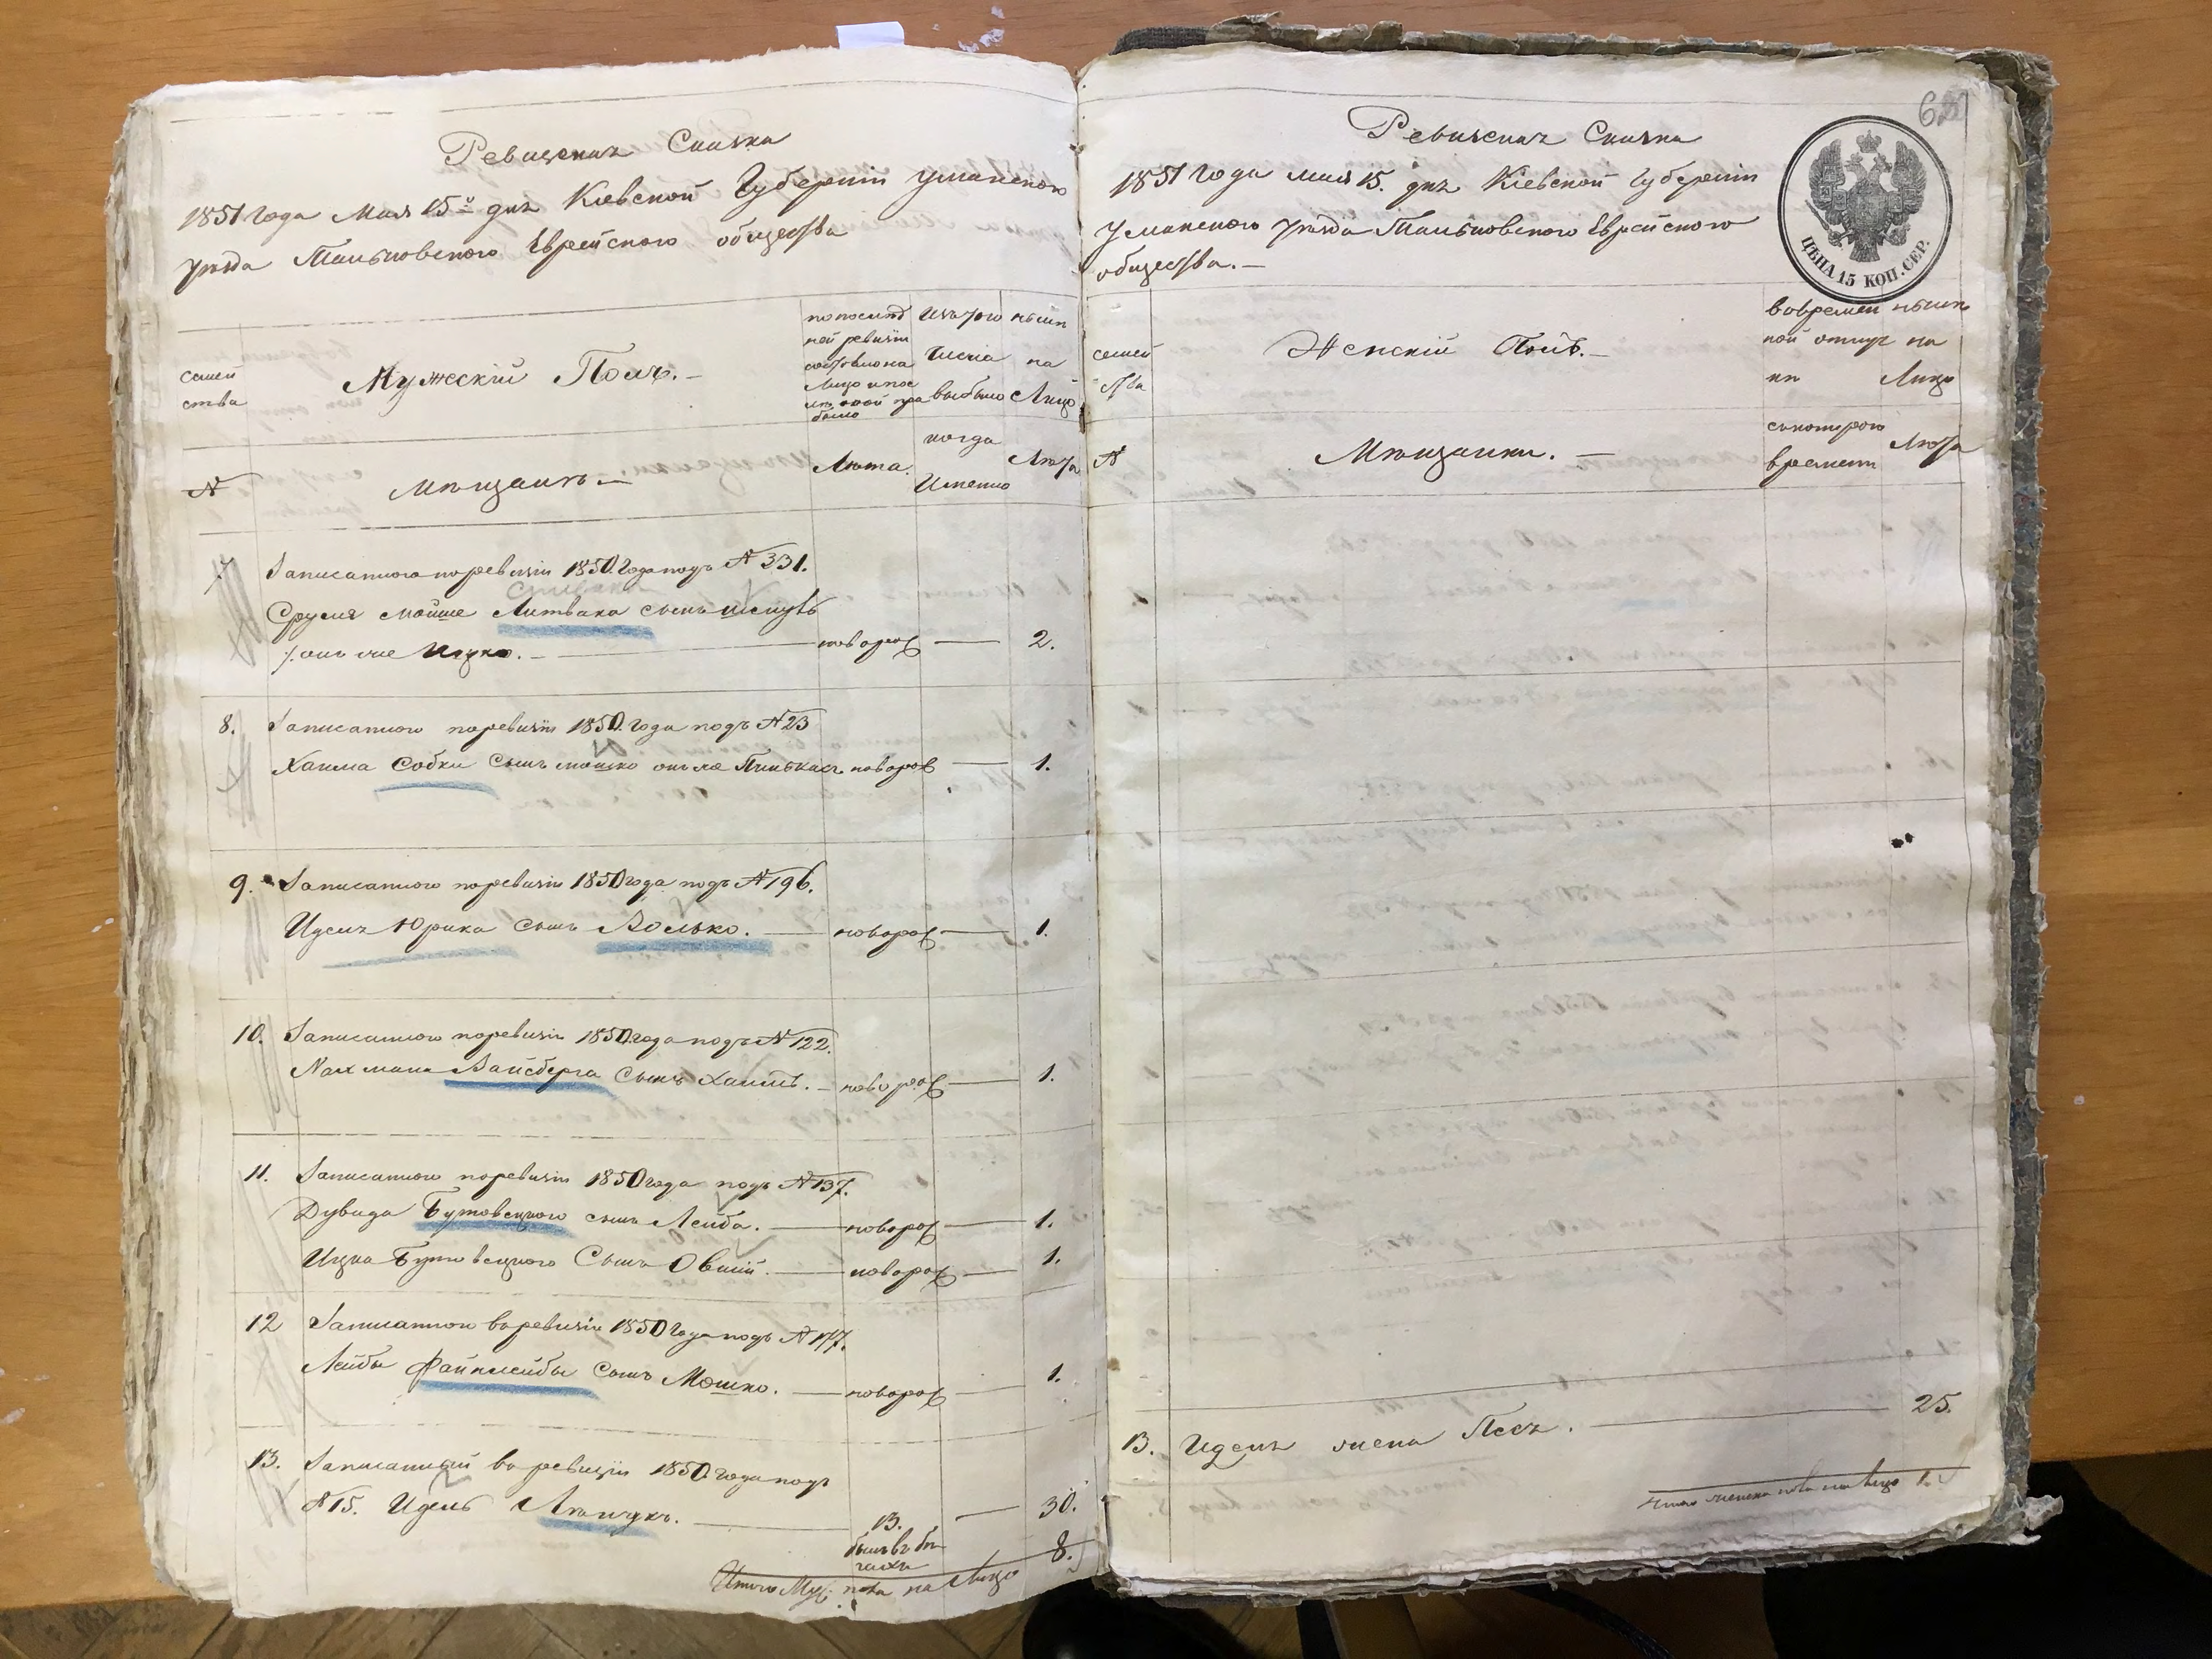 Ревизская Сказка
1851 года Мая 15го дня Кіевской Губерніи Уманского
уезда Тальновского Еврейского общества
семей
ства
Мужескій Полъ. —
по послед
ней ревизіи
состояло на
лицо и после
оной при
было
Изъ того
числа
выбыло
ныне
на
Лицо
№
Мещане. —
Лета.
когда
Именно
Лета
7
Записанного по ревизіи 1850 года подъ № 331.
Сруля Мойше Литвака сынъ
онъ же Ицко. — новорож — 2.
8. Записанного по ревизіи 1850 года подъ № 23
Хаима Собки Сынъ Мошко онъ же Пинькасъ новорож — 1.
9. Записанного по ревизіи 1850 года подъ № 196.
Иделя Юрика Сынъ Волько. — новорож — 1.
10. Записанного по ревизіи 1850 года подъ № 122.
Нахмана Вайсберга Сынъ Хаимъ. — новорож — 1.
11. Записанного по ревизіи 1850 года подъ № 137.
Дувида Бутовецкого сынъ Лейба. — новорож — 1.
Ицка Бутовецкого Сынъ Овшій. — новорож — 1.
12 Записанного въ ревизіи 1850 года подъ № 147.
Лейбы Файнлейбы Сынъ Мошко. — новорож — 1.
13. Записанный въ ревизіи 1850 года подъ
№ 15. Идель — 13. — 30.
былъ въ бе
гахъ
Итого Муж: пола на Лицо 8.
Ревизская Сказка
1851 года мая 15. дня Кіевской Губерніи
Уманского уезда Тальновского Еврейского
общества. —
семей
ства
Женскій Полъ. —
во времен
ной отлуч
ки
ныне
на
Лицо
№
Мещанки. —
съ котораго
времени
Лета
ЦѢНА 15 КОП. СЕР.
13. Иделя жена Песя. — 25.
Итого женска пола на лицо 1.